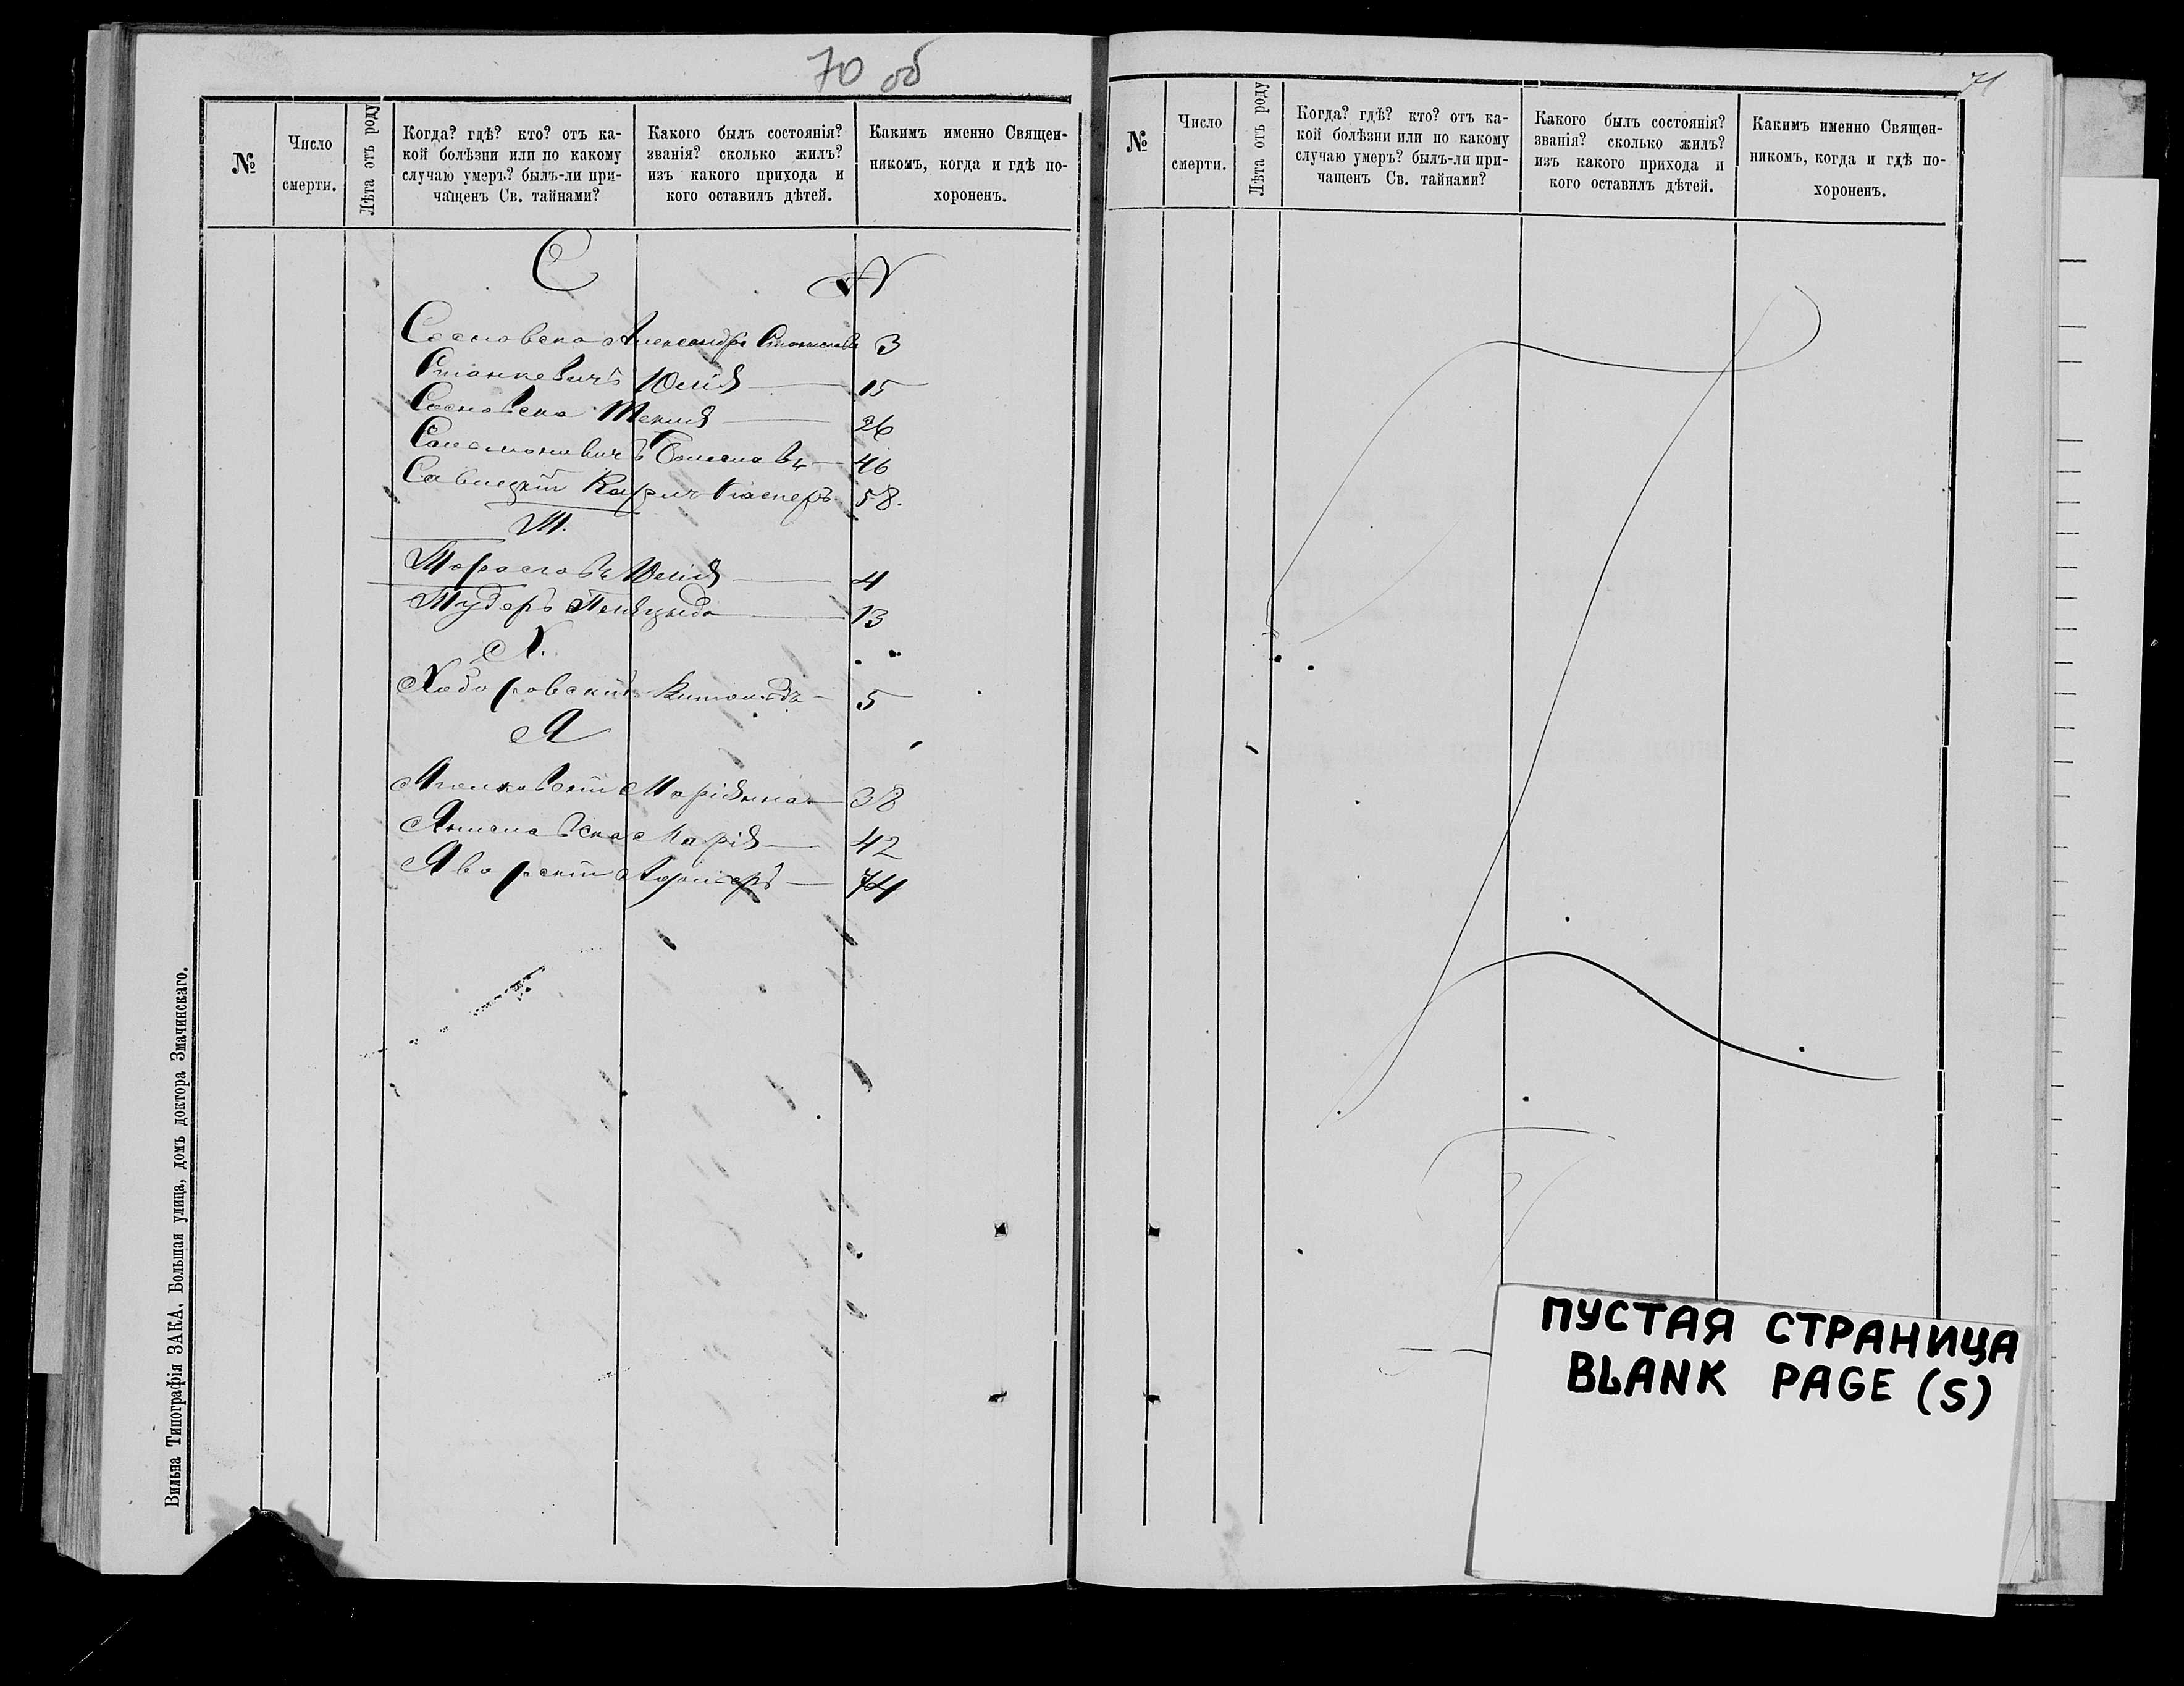 70 об
№
Число смерти.
Лѣта отъ роду
Когда? гдѣ? кто? отъ ка-
кой болѣзни или по какому
случаю умеръ? былъ-ли при-
чащенъ Св. тайнами?
Какого былъ состоянія?
званія? сколько жилъ?
изъ какого прихода и
кого оставилъ дѣтей.
Каким именно Священ-
никомъ, когда и гдѣ по-
хороненъ.
С N
Сосновска Александра Станислава 3
Станкевичъ Юлія 15
Сосновска Текля 26
46
Савицкій 58.
Т.
Юлія 4
Тудеръ 13
Х.
Ходоровскій 5
Я
Маріянна 38
Марія 42
Яворскій 74
Вильна Типографія ЗАКА, Большая улица, домъ доктора Змачинскаго.
71
№
Число смерти.
Лѣта отъ роду
Когда? гдѣ? кто? отъ ка-
кой болѣзни или по какому
случаю умеръ? былъ-ли при-
чащенъ Св. тайнами?
Какого былъ состоянія?
званія? сколько жилъ?
изъ какого прихода и
кого оставилъ дѣтей.
Каким именно Священ-
никомъ, когда и гдѣ по-
хороненъ.
ПУСТАЯ СТРАНИЦА
BLANK PAGE (S)